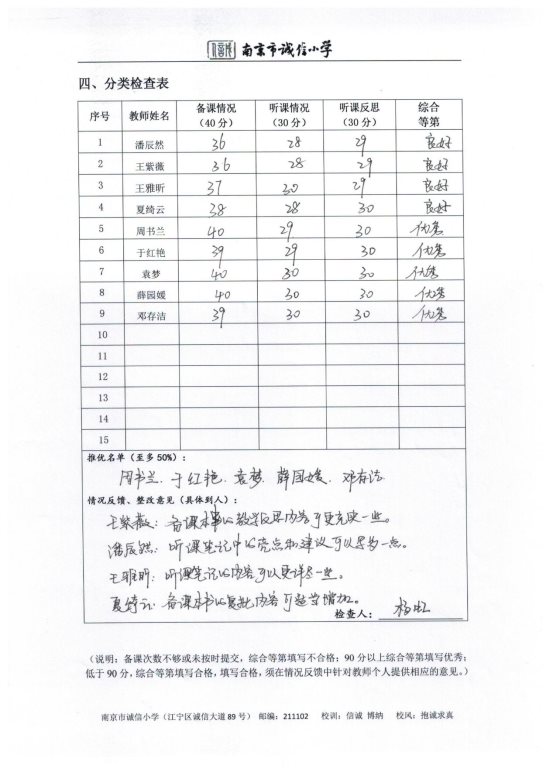 南京市诚信小学
四、分类检查表
序号 教师姓名 备课情况（40分） 听课情况（30分） 听课反思（30分） 综合等第
1 潘辰然 36 28 29 良好
2 王紫薇 36 28 29 良好
3 王雅昕 37 30 29 良好
4 夏绮云 38 28 30 良好
5 周书兰 40 29 30 优秀
6 于红艳 39 29 30 优秀
7 袁梦 40 30 30 优秀
8 薛园媛 40 30 30 优秀
9 邓存洁 39 30 30 优秀
10
11
12
13
14
15
推优名单（至多50%）：
周书兰、于红艳、袁梦、薛园媛、邓存洁
情况反馈、整改意见（具体到人）：
王紫薇：备课本中的教学反思内容可更充实一些。
潘辰然：听课笔记中的亮点和建议可以更多一点。
王雅昕：听课笔记的内容可以更详尽一些。
夏绮云：备课本书的复批内容可适当增加。
检查人：杨
（说明：备课次数不够或未按时提交，综合等第填写不合格；90分以上综合等第填写优秀；
低于90分，综合等第填写合格，填写合格，须在情况反馈中针对教师个人提供相应的意见。）
南京市诚信小学（江宁区诚信大道89号） 邮编：211102 校训：信诚 博纳 校风：抱诚求真